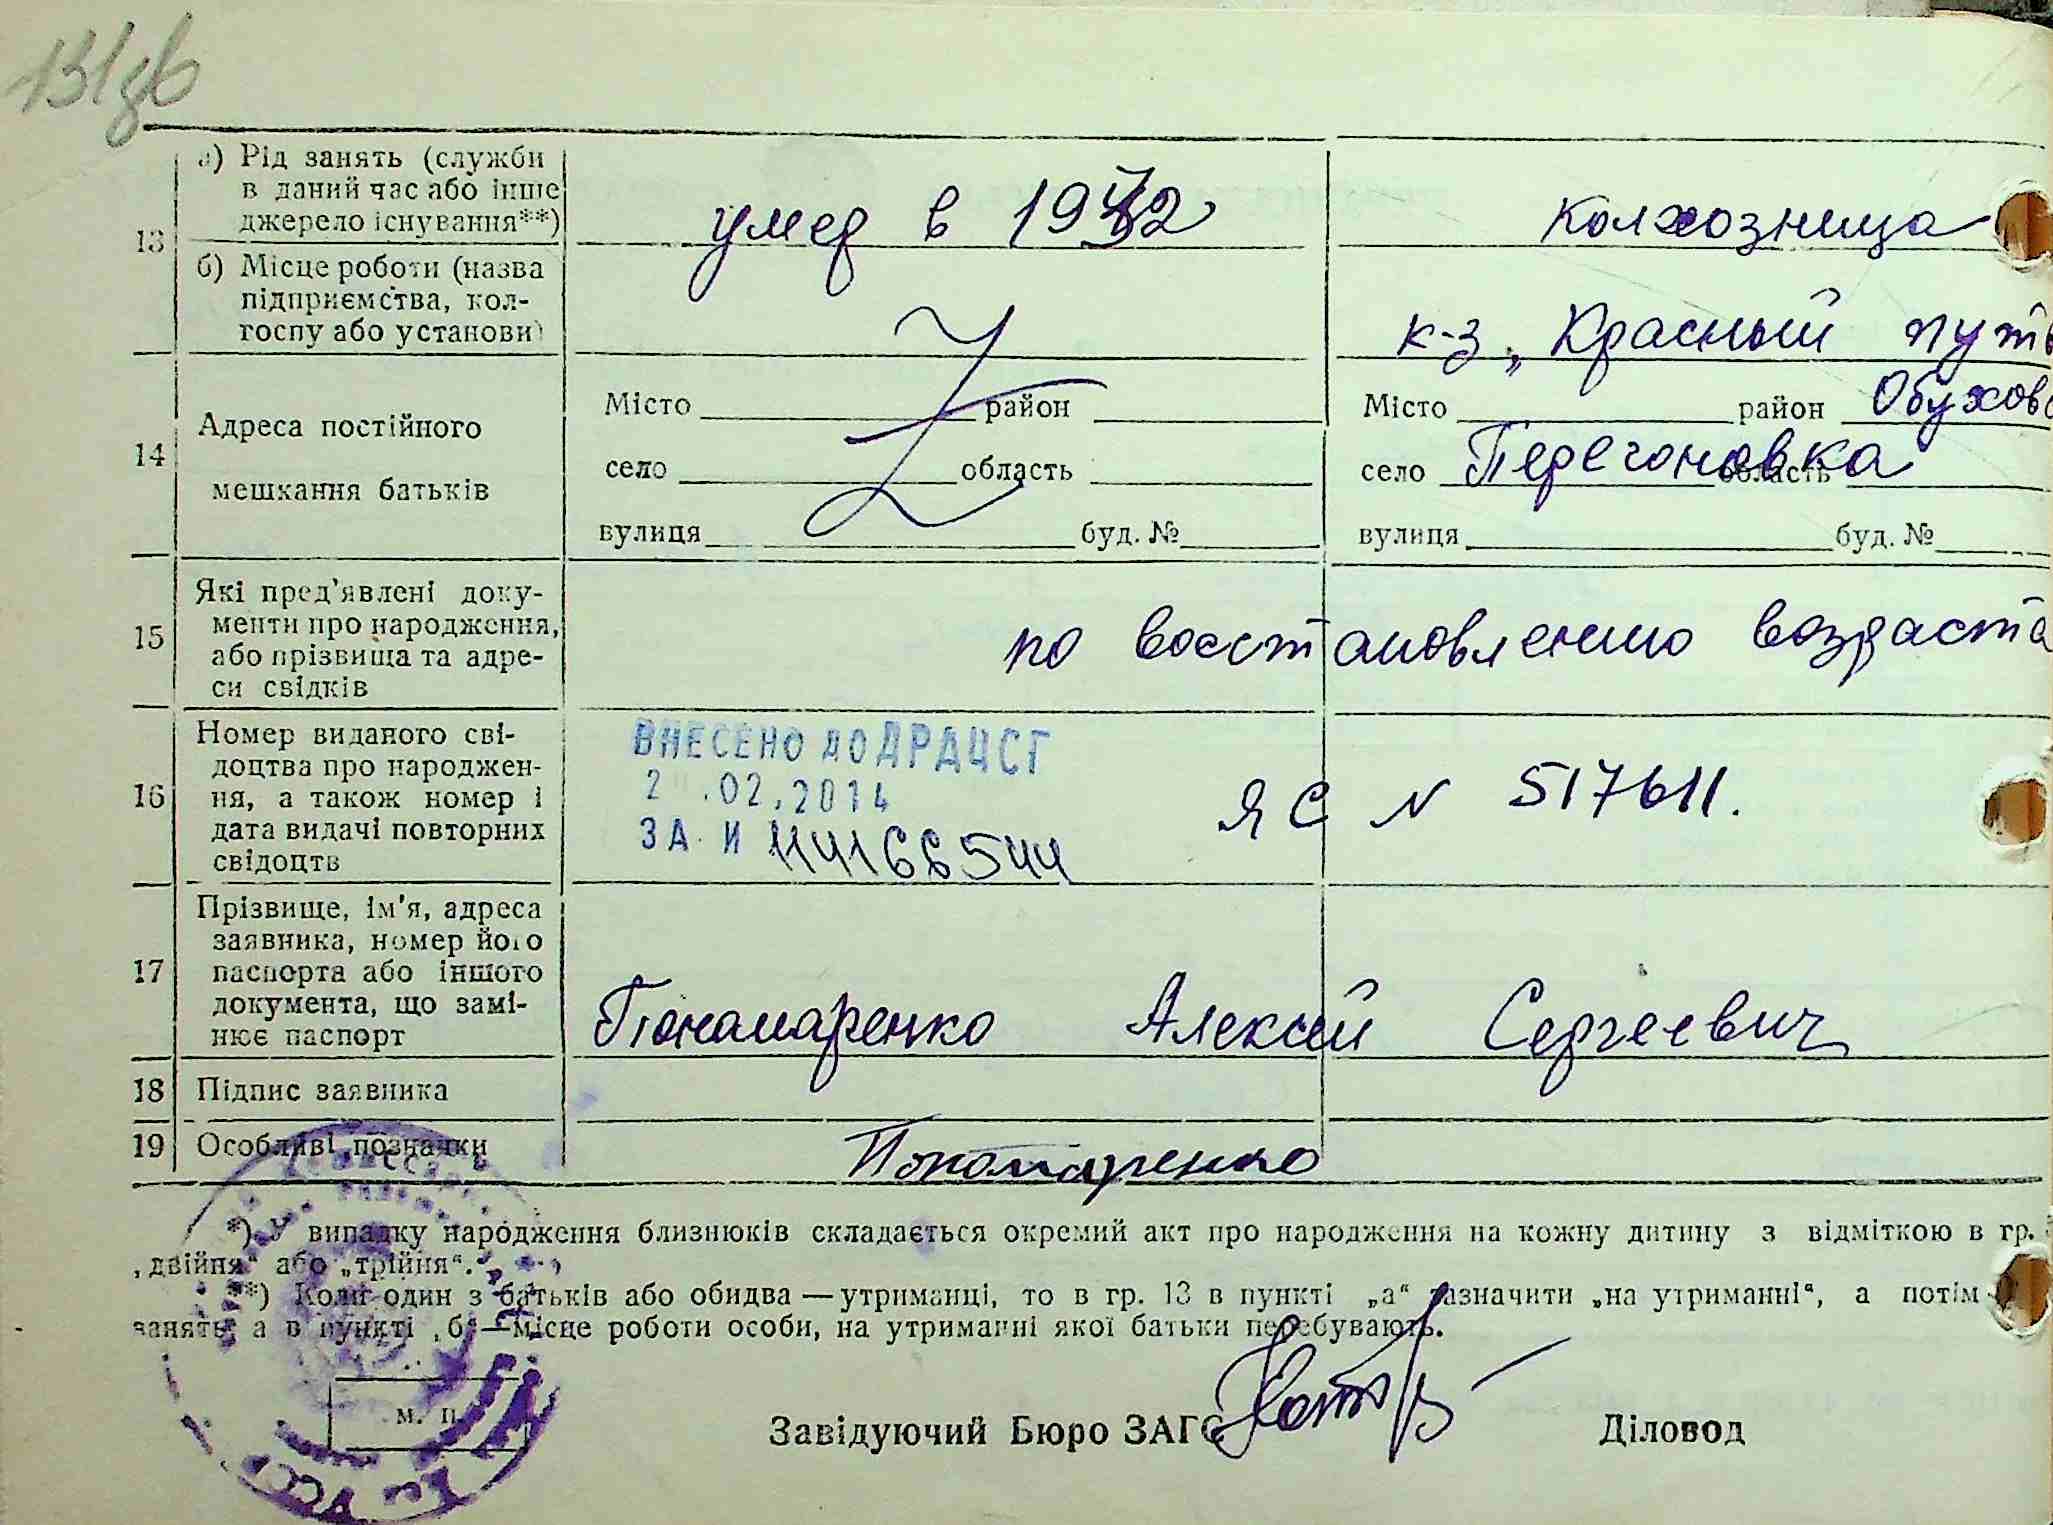 13
а) Рід занять (служби
в даний час або інше
джерело існування**)
умер в
колхозница
б) Місце роботи (назва
підприємства, кол-
госпу або установи)
к-з „Красный путь
14
Адреса постійного
мешкання батьків
Місто район
село область
вулиця буд. №
Місто район Обухов
село Перегоновка область
вулиця буд. №
15
Які пред'явлені доку-
менти про народження,
або прізвища та адре-
си свідків
по восстановлению возраста
16
Номер виданого сві-
доцтва про народжен-
ня, а також номер і
дата видачі повторних
свідоцтв
ВНЕСЕНО ДО ДРАЦСГ
.02.2014
ЗА И 114166544
ЯС N 517611.
17
Прізвище, ім'я, адреса
заявника, номер його
паспорта або іншого
документа, що замі-
нює паспорт
Понамаренко Алексей Сергеевич
18 Підпис заявника
19 Особливі позначки
Пономаренко
*) У випадку народження близнюків складається окремий акт про народження на кожну дитину з відміткою в гр.
„двійня“ або „трійня“.
**) Коли один з батьків або обидва — утриманці, то в гр. 13 в пункті „а“ зазначити „на утриманні“, а потім
занять, а в пункті „б“ — місце роботи особи, на утриманні якої батьки перебувають.
м. п.
Завідуючий Бюро ЗАГС
Діловод